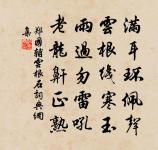 滿耳環佩聲
雲根繞寒玉
雨過勿雷吼
老龍鼾正熟
鄭國輔雲根石詞典網
集